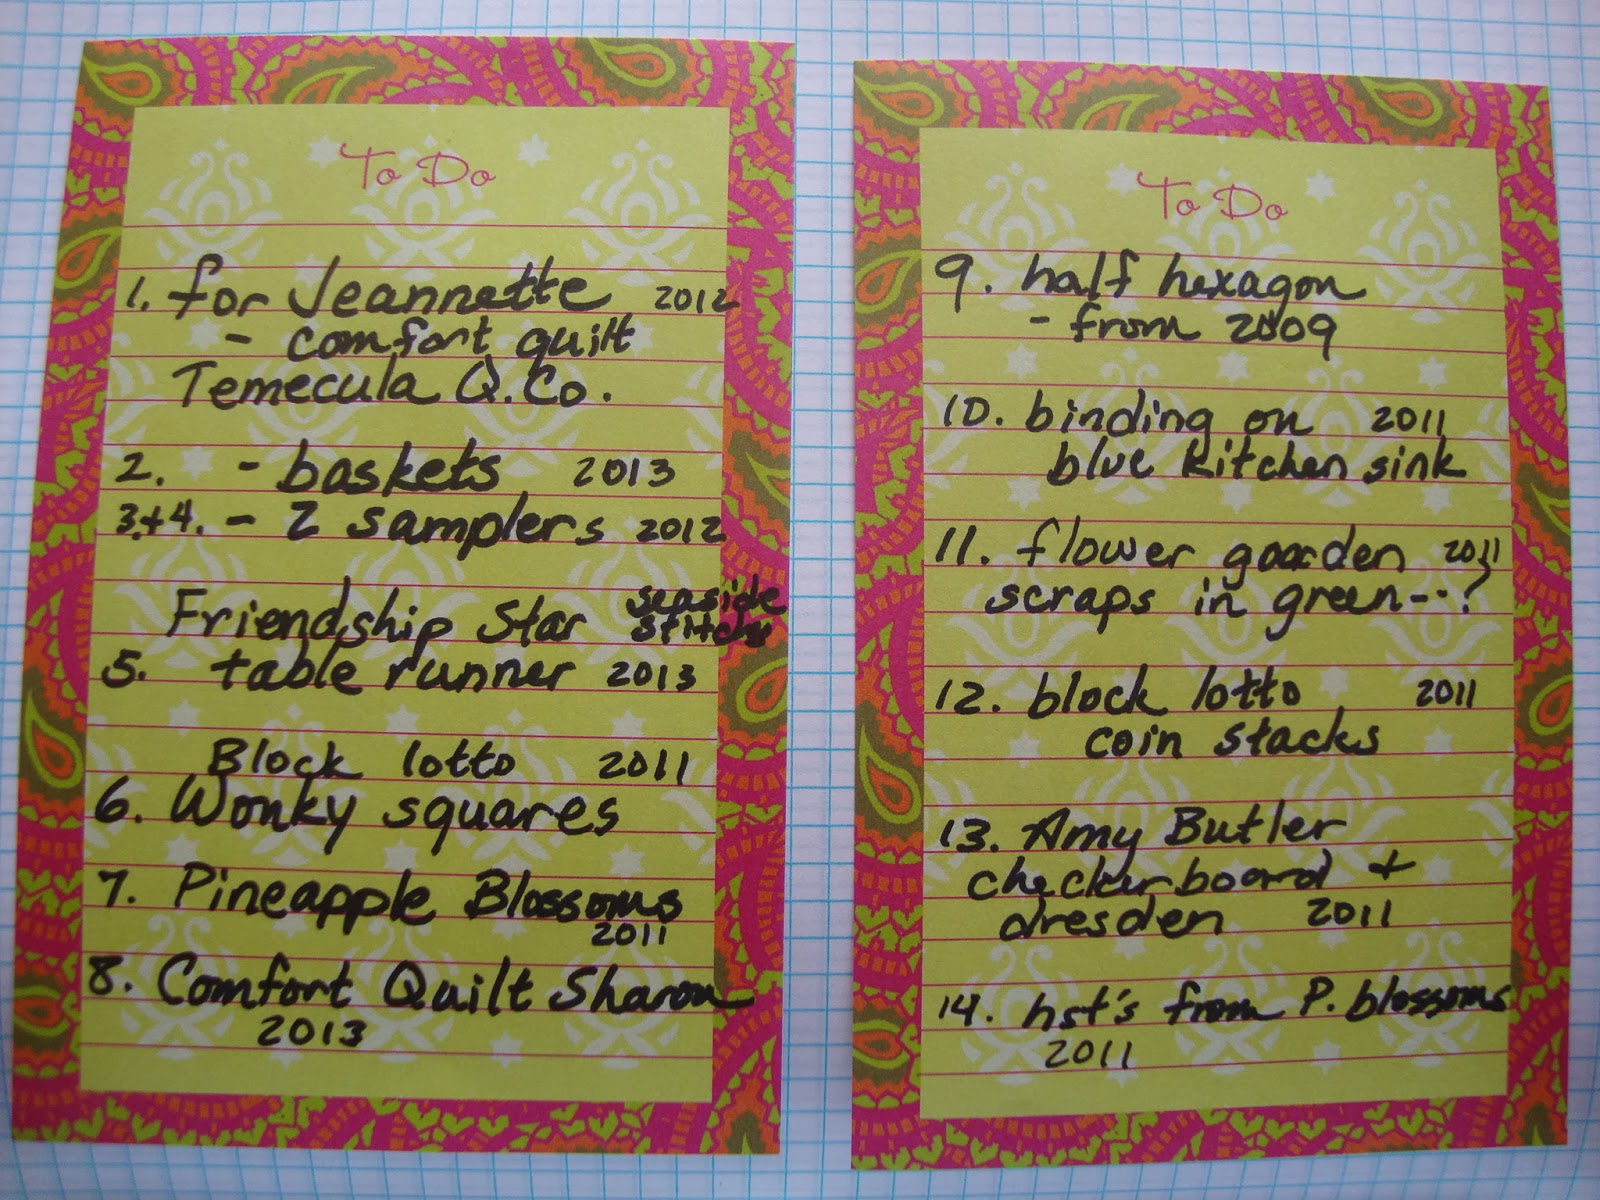 To Do
1. for Jeannette 2012
- comfort quilt
Temecula Q. Co.
2. - baskets 2013
3.+4. - 2 samplers 2012
Friendship Star seaside stitches
5. table runner 2013
Block lotto 2011
6. Wonky squares
7. Pineapple Blossoms
2011
8. Comfort Quilt Sharon
2013
To Do
9. half hexagon
- from 2009
10. binding on 2011
blue kitchen sink
11. flower gaarden 2011
scraps in green--?
12. block lotto 2011
coin stacks
13. Amy Butler
checkerboard +
dresden 2011
14. hst's from P. blossoms
2011